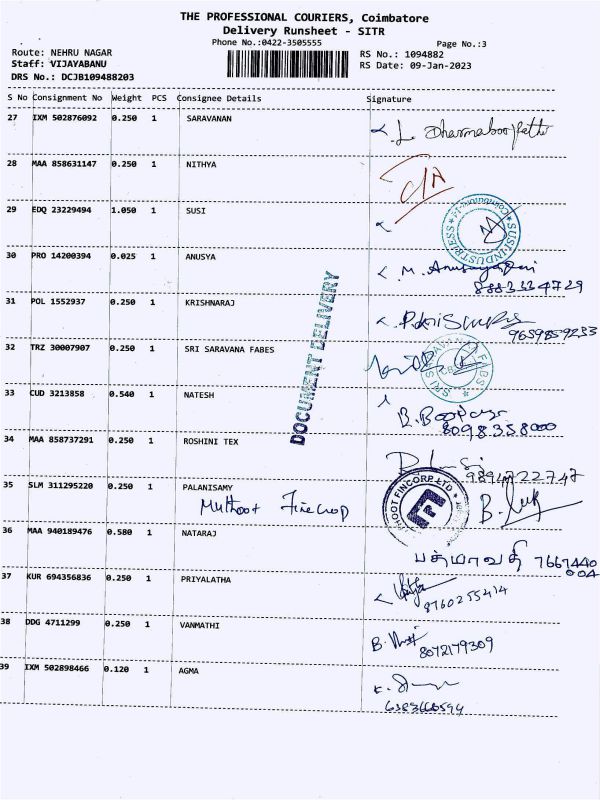 THE PROFESSIONAL COURIERS, Coimbatore
Delivery Runsheet - SITR
Phone No.:0422-3505555
Page No.:3
Route: NEHRU NAGAR
RS No.: 1094882
Staff: VIJAYABANU
RS Date: 09-Jan-2023
DRS No.: DCJB109488203
S No Consignment No Weight PCS Consignee Details Signature
27 IXM 502876092 0.250 1 SARAVANAN
L. Dharmaboopathi
28 MAA 858631147 0.250 1 NITHYA
29 EDQ 23229494 1.050 1 SUSI
SUSI INDUSTRIESS
30 PRO 14200394 0.025 1 ANUSYA
M. Anusaya
8883334729
31 POL 1552937 0.250 1 KRISHNARAJ
9659859233
DOCUMENT DELIVERY
32 TRZ 30007907 0.250 1 SRI SARAVANA FABES
33 CUD 3213858 0.540 1 NATESH
8098358000
34 MAA 858737291 0.250 1 ROSHINI TEX
9894722747
35 SLM 311295220 0.250 1 PALANISAMY
Muthoot Fincrop
36 MAA 940189476 0.580 1 NATARAJ
பத்மாவதி 7667440
004
37 KUR 694356836 0.250 1 PRIYALATHA
8760255414
38 DDG 4711299 0.250 1 VANMATHI
8072179309
39 IXM 502898466 0.120 1 AGMA